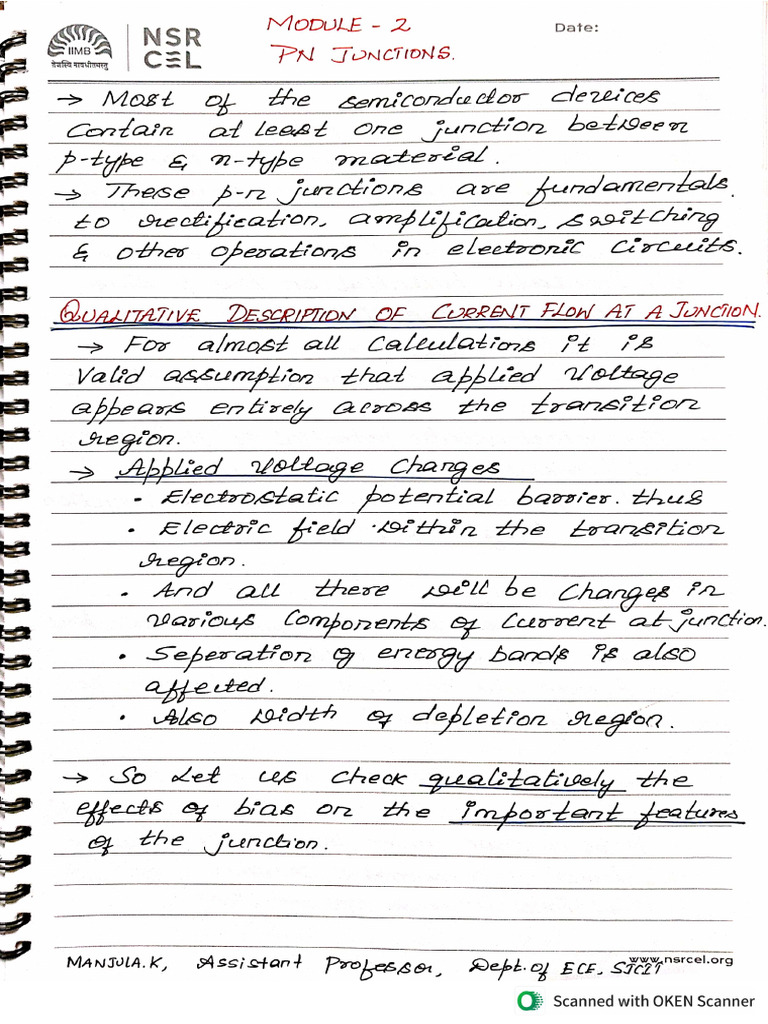 MODULE - 2
Date:
IIMB
तेजस्वि नावधीतमस्तु
NSR
CEL
PN JUNCTIONS.
→ Most of the semiconductor devices
contain at least one junction between
p-type & n-type material.
→ These p-n junctions are fundamentals
to rectification, amplification, switching
& other operations in electronic circuits.
QUALITATIVE DESCRIPTION OF CURRENT FLOW AT A JUNCTION.
→ For almost all calculations it is
valid assumption that applied voltage
appears entirely across the transition
region.
→ Applied voltage changes
• Electrostatic potential barrier. thus
• Electric field within the transition
region.
• And all there will be changes in
various components of current at junction.
• Seperation of energy bands is also
affected.
• Also width of depletion region.
→ So let us check qualitatively the
effects of bias on the important features
of the junction.
www.nsrcel.org
MANJULA.K, Assistant Professor, Dept. of ECE, SJCIT
Scanned with OKEN Scanner